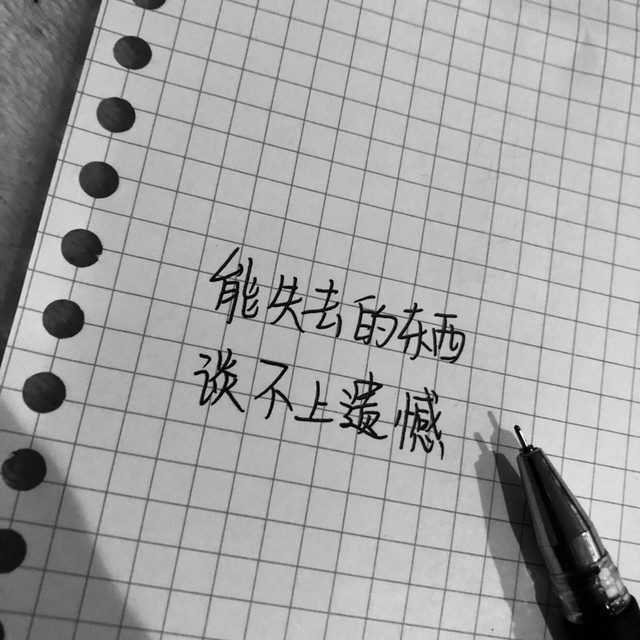 能失去的东西
谈不上遗憾